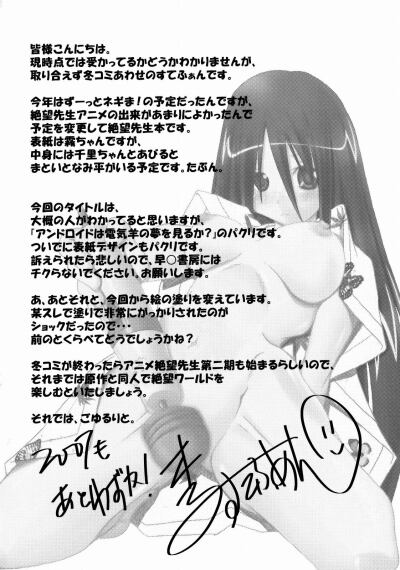 皆様こんにちは。
現時点では受かってるかどうかわかりませんが、
取り合えず冬コミあわせのすてふぁんです。
今年はずーっとネギま！の予定だったんですが、
絶望先生アニメの出来があまりによかったんで
予定を変更して絶望先生本です。
表紙は霧ちゃんですが、
中身には千里ちゃんとあびると
まといとなみ平がいる予定です。たぶん。
今回のタイトルは、
大概の人がわかってると思いますが、
「アンドロイドは電気羊の夢を見るか？」のパクリです。
ついでに表紙デザインもパクリです。
訴えられたら悲しいので、早○書房には
チクらないでください。お願いします。
あ、あとそれと、今回から絵の塗りを変えています。
某スレで塗りで非常にがっかりされたのが
ショックだったので・・・
前のとくらべてどうでしょうかね？
冬コミが終わったらアニメ絶望先生第二期も始まるらしいので、
それまでは原作と同人で絶望ワールドを
楽しむといたしましょう。
それでは、ごゆるりと。
2007も
あとわずか！